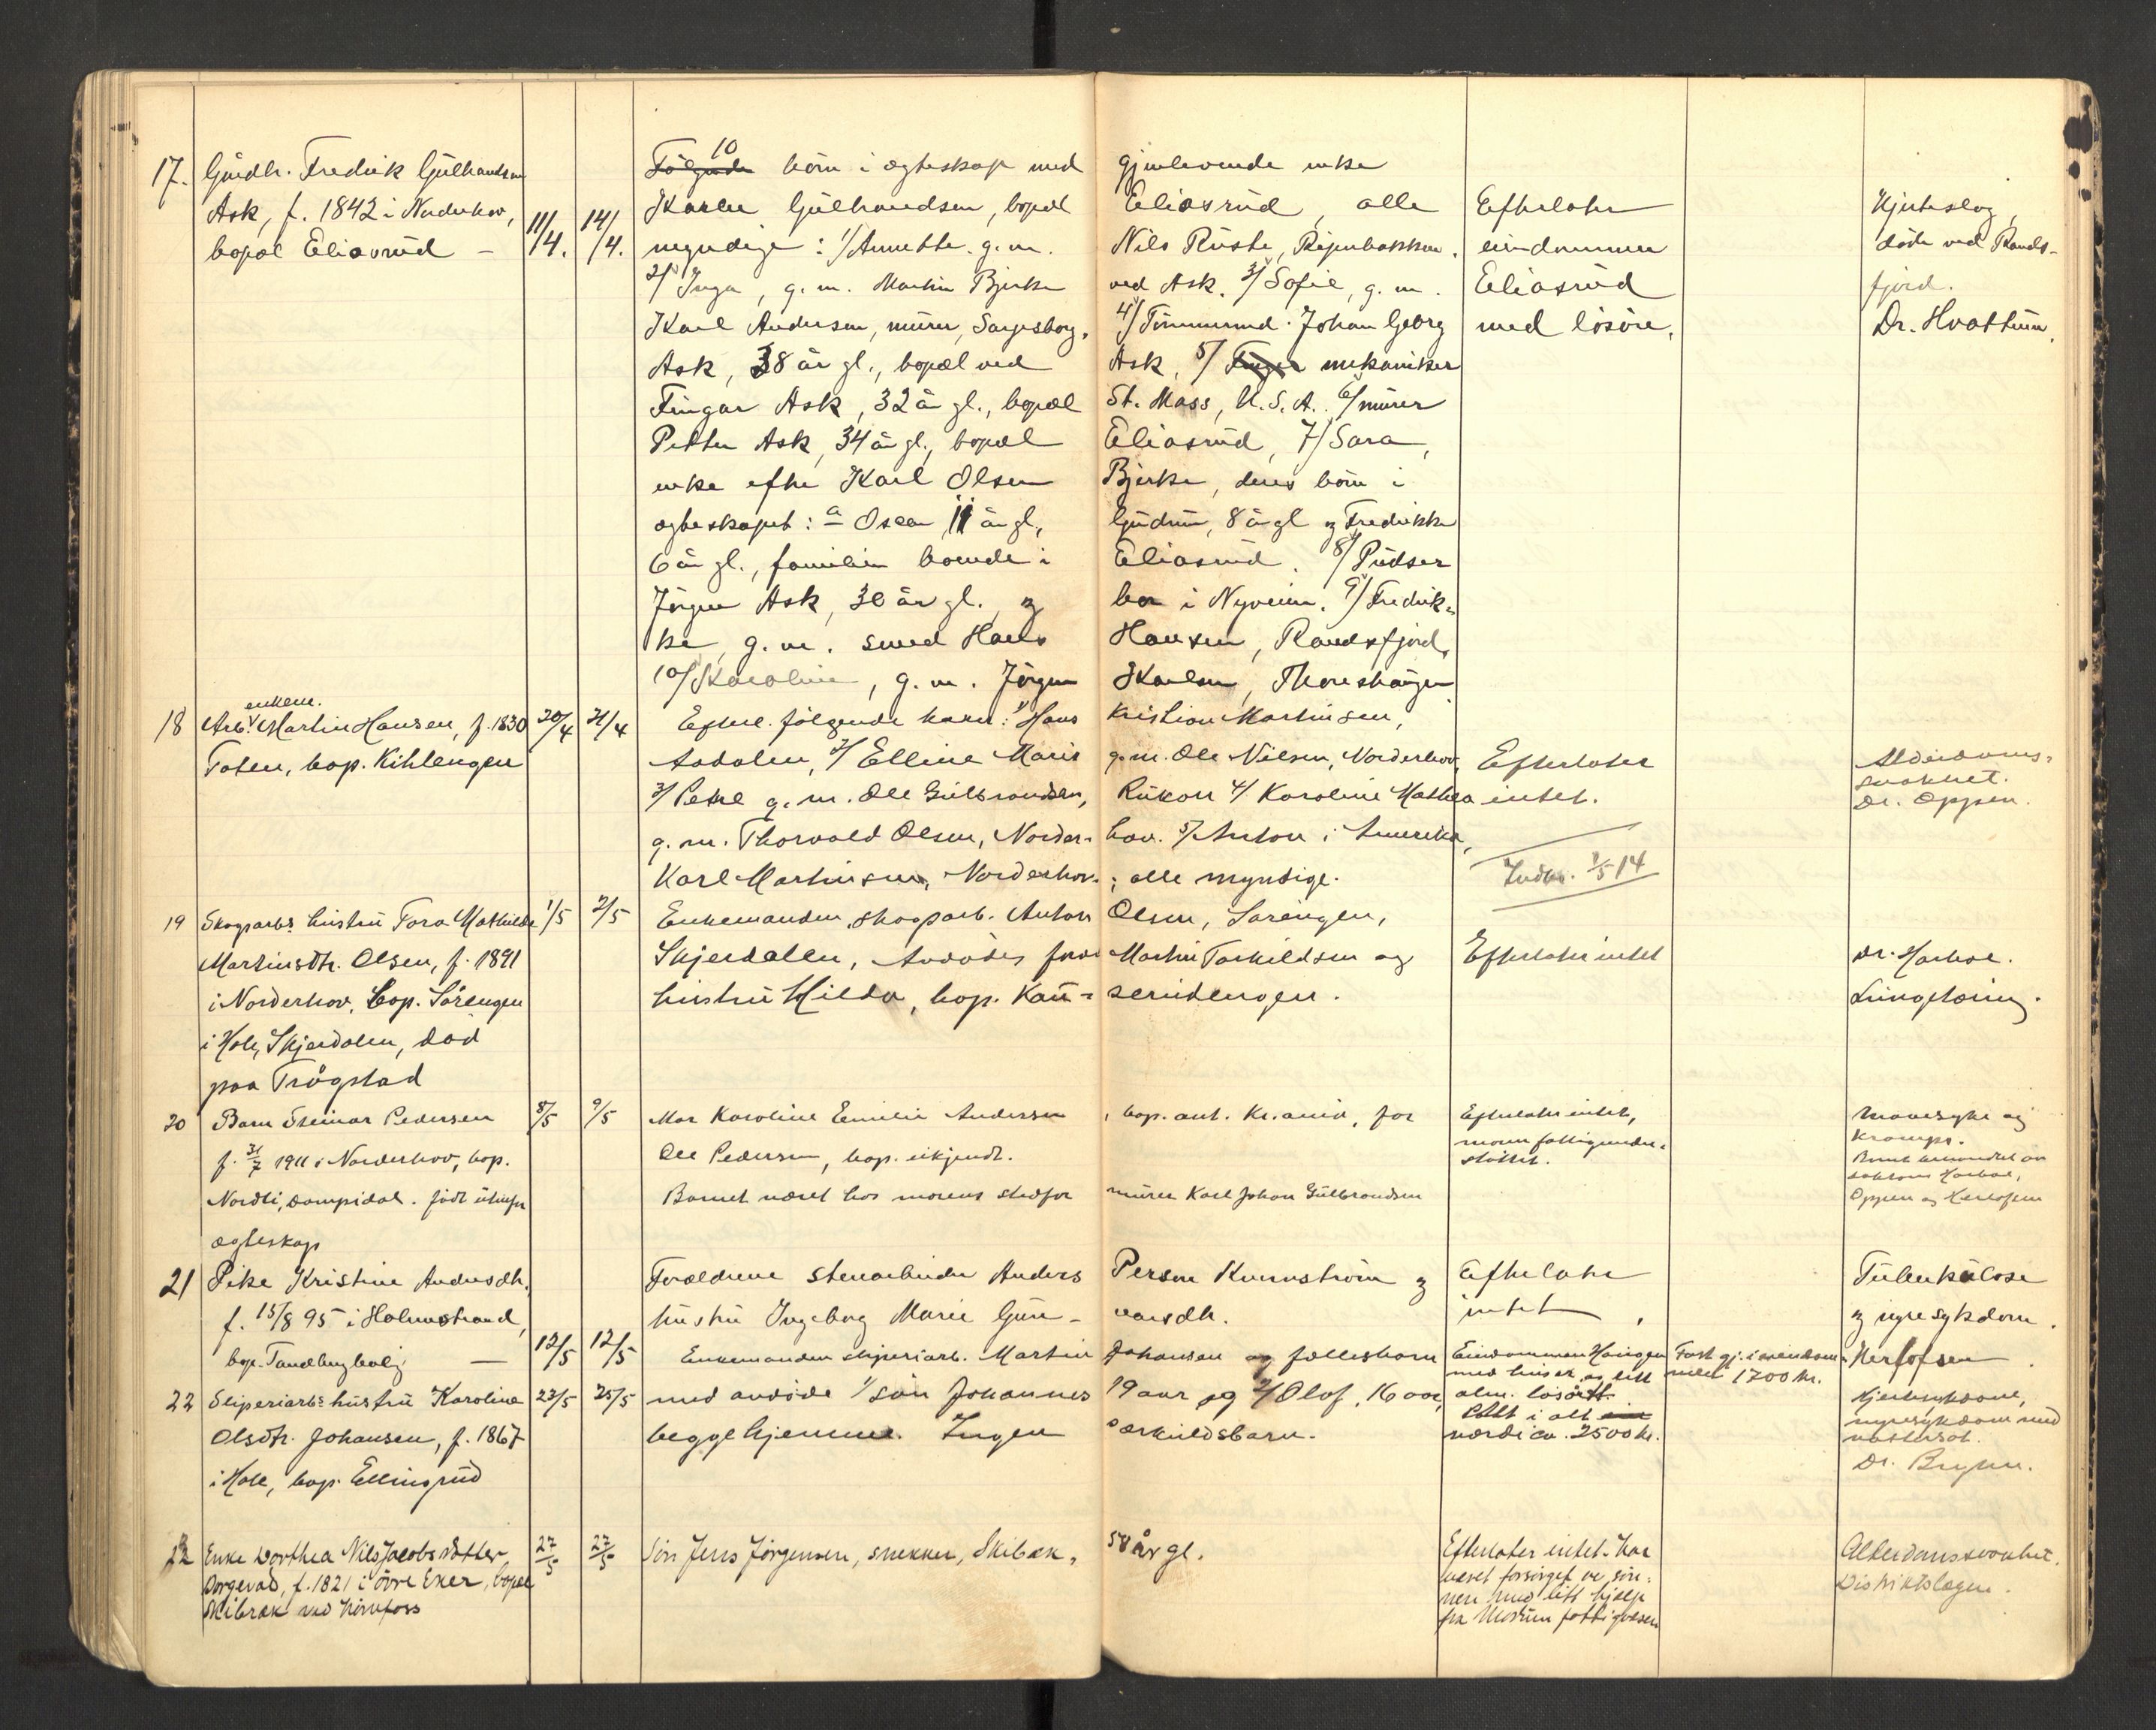 17. Gårdbr. Fredrik Gulbrandsen
Ask, f. 1842 i Norderhov,
bopæl Eliasrud –
11/4. 14/4.
10
Følgende børn i ægteskap med gjenlevende enke
Karen Gulbrandsen, bopæl Eliasrud, alle
myndige: 1/ Annette g. m. Nils Ruste, Ripenbakken.
2/ Inga, g. m. Martin Bjerke ved Ask. 3/ Sofie, g. m.
Karl Andersen, murer, Sarpsborg. 4/ Tømmermd. Johan Georg
Ask, 38 år gl., bopæl ved Ask, 5/ mekaniker
Fingar Ask, 32 år gl., bopæl St. Mass, U.S.A. 6/ murer
Petter Ask, 34 år gl., bopæl Eliasrud, 7/ Sara,
enke efter Karl Olsen Bjerke, deres børn i
ægteskapet: a Oscar 11 år gl., Gudrun, 8 år gl og Fredrikke
6 år gl., familien boende i Eliasrud. 8/ Pudser
Jørgen Ask, 30 år gl., og bor i Nyveien. 9/ Fredrik-
ke, g. m. smed Hans Hansen, Randsfjord,
10/ Karoline, g. m. Jørgen Karlsen, Thoreshaugen
Efterlater
eiendommen
Eliasrud
med løsøre.
Hjerteslag,
døde ved Rands-
fjord.
Dr. Hvattum.
enkem.
18 Arb. Martin Hansen, f. 1830
Toten, bop. Kihlengen
20/4 21/4
Efterl. følgende barn: 1/ Hans Kristian Martinsen,
Aadalen, 2/ Elline Marie g. m. Ole Nilsen, Norderhov,
3/ Petre g. m. Ole Gulbrandsen, Rukon 4/ Karoline Mathea
g. m. Thorvald Olsen, Norder- hov. 5/ Anton i Amerika,
Karl Martinsen, Norderhov. ; alle myndige.
Efterlater
intet.
Indb. 1/5 14
Alderdoms-
svakhet.
Dr. Oppen.
19 Skogsarbs hustru Tora Mathilde
Martinsdtr. Olsen, f. 1891
i Norderhov, bop. Sørengen
i Hole, Skjerdalen, død
paa Trøgstad
1/5 2/5
Enkemanden, skogsarb. Anton Olsen, Sørengen,
Skjerdalen, Avdødes for Martin Torkildsen og
hustru Hilda, bop. Kau- serudengen.
Efterlater intet
Dr. Harboe.
Lungetæring.
20 Barn Steinar Pedersen
f. 31/7 1911 i Norderhov, bop.
Nordli, Dompidal. født utenfor
ægteskap
8/5 9/5
Mor Karoline Emilie Andersen, bop. ant. Kr.ania, far
Ole Pedersen, bop. ukjendt.
Barnet været hos morens stedfar murer Karl Johan Gulbrandsen
Efterlater intet,
moren fattigunder-
støttet.
Mavesyke og
krampe.
Barnet behandlet av
doktorene Harboe,
Oppen og Herlofsen
21 Pike Kristine Andersdtr.
f. 15/8 95 i Holmestrand,
bop. Tandbergbolig –
12/5 12/5
Forældrene stenarbeider Anders Person Kvarnstrøm og
hustru Ingeborg Marie Gun- varsdtr.
Efterlater
intet.
Tuberkulose
og nyresykdom.
Herlofsen.
22 Sliperiarbs hustru Karoline
Olsdtr. Johansen, f. 1867
i Hole, bop. Ellingsrud
23/5 25/5
Enkemanden sliperiarb. Martin Johansen og fællesbarn
med avdøde 1/ søn Johannes 19 aar og 2/ Olof, 16 aar,
begge hjemme. Ingen særkuldsbarn.
Eiendommen Haugen
med huser og litt
alm. løsøre.
Alt i alt
værdi ca. 2500 kr.
Fast gj. i eiendom-
men 1700 kr.
Hjertesykdom,
nyresykdom med
vattersot.
Dr. Bryn.
22 Enke Dorthea Nils Jacobsdatter
Dorgevad, f. 1821 i øvre Eker, bopæl
Skibræk ved Hønefoss
27/5 27/5
Søn Jens Jørgensen, snekker, Skibræk, 58 år gl.
Efterlater intet. Har
været forsørget av søn-
nen med litt hjælp
fra Modum fattigvæsen
Alderdomssvakhet.
Distriktslægen.